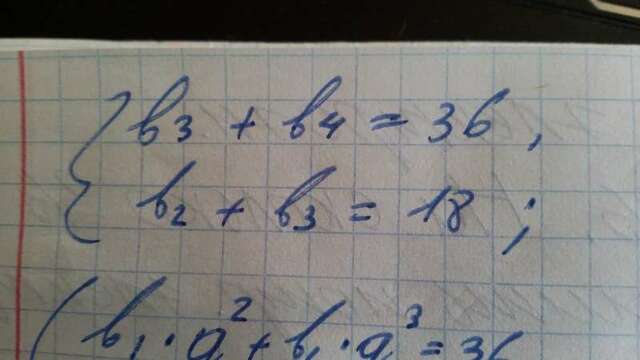 b₃ + b₄ = 36,
b₂ + b₃ = 18;
b₁·q² + b₁·q³ = 36